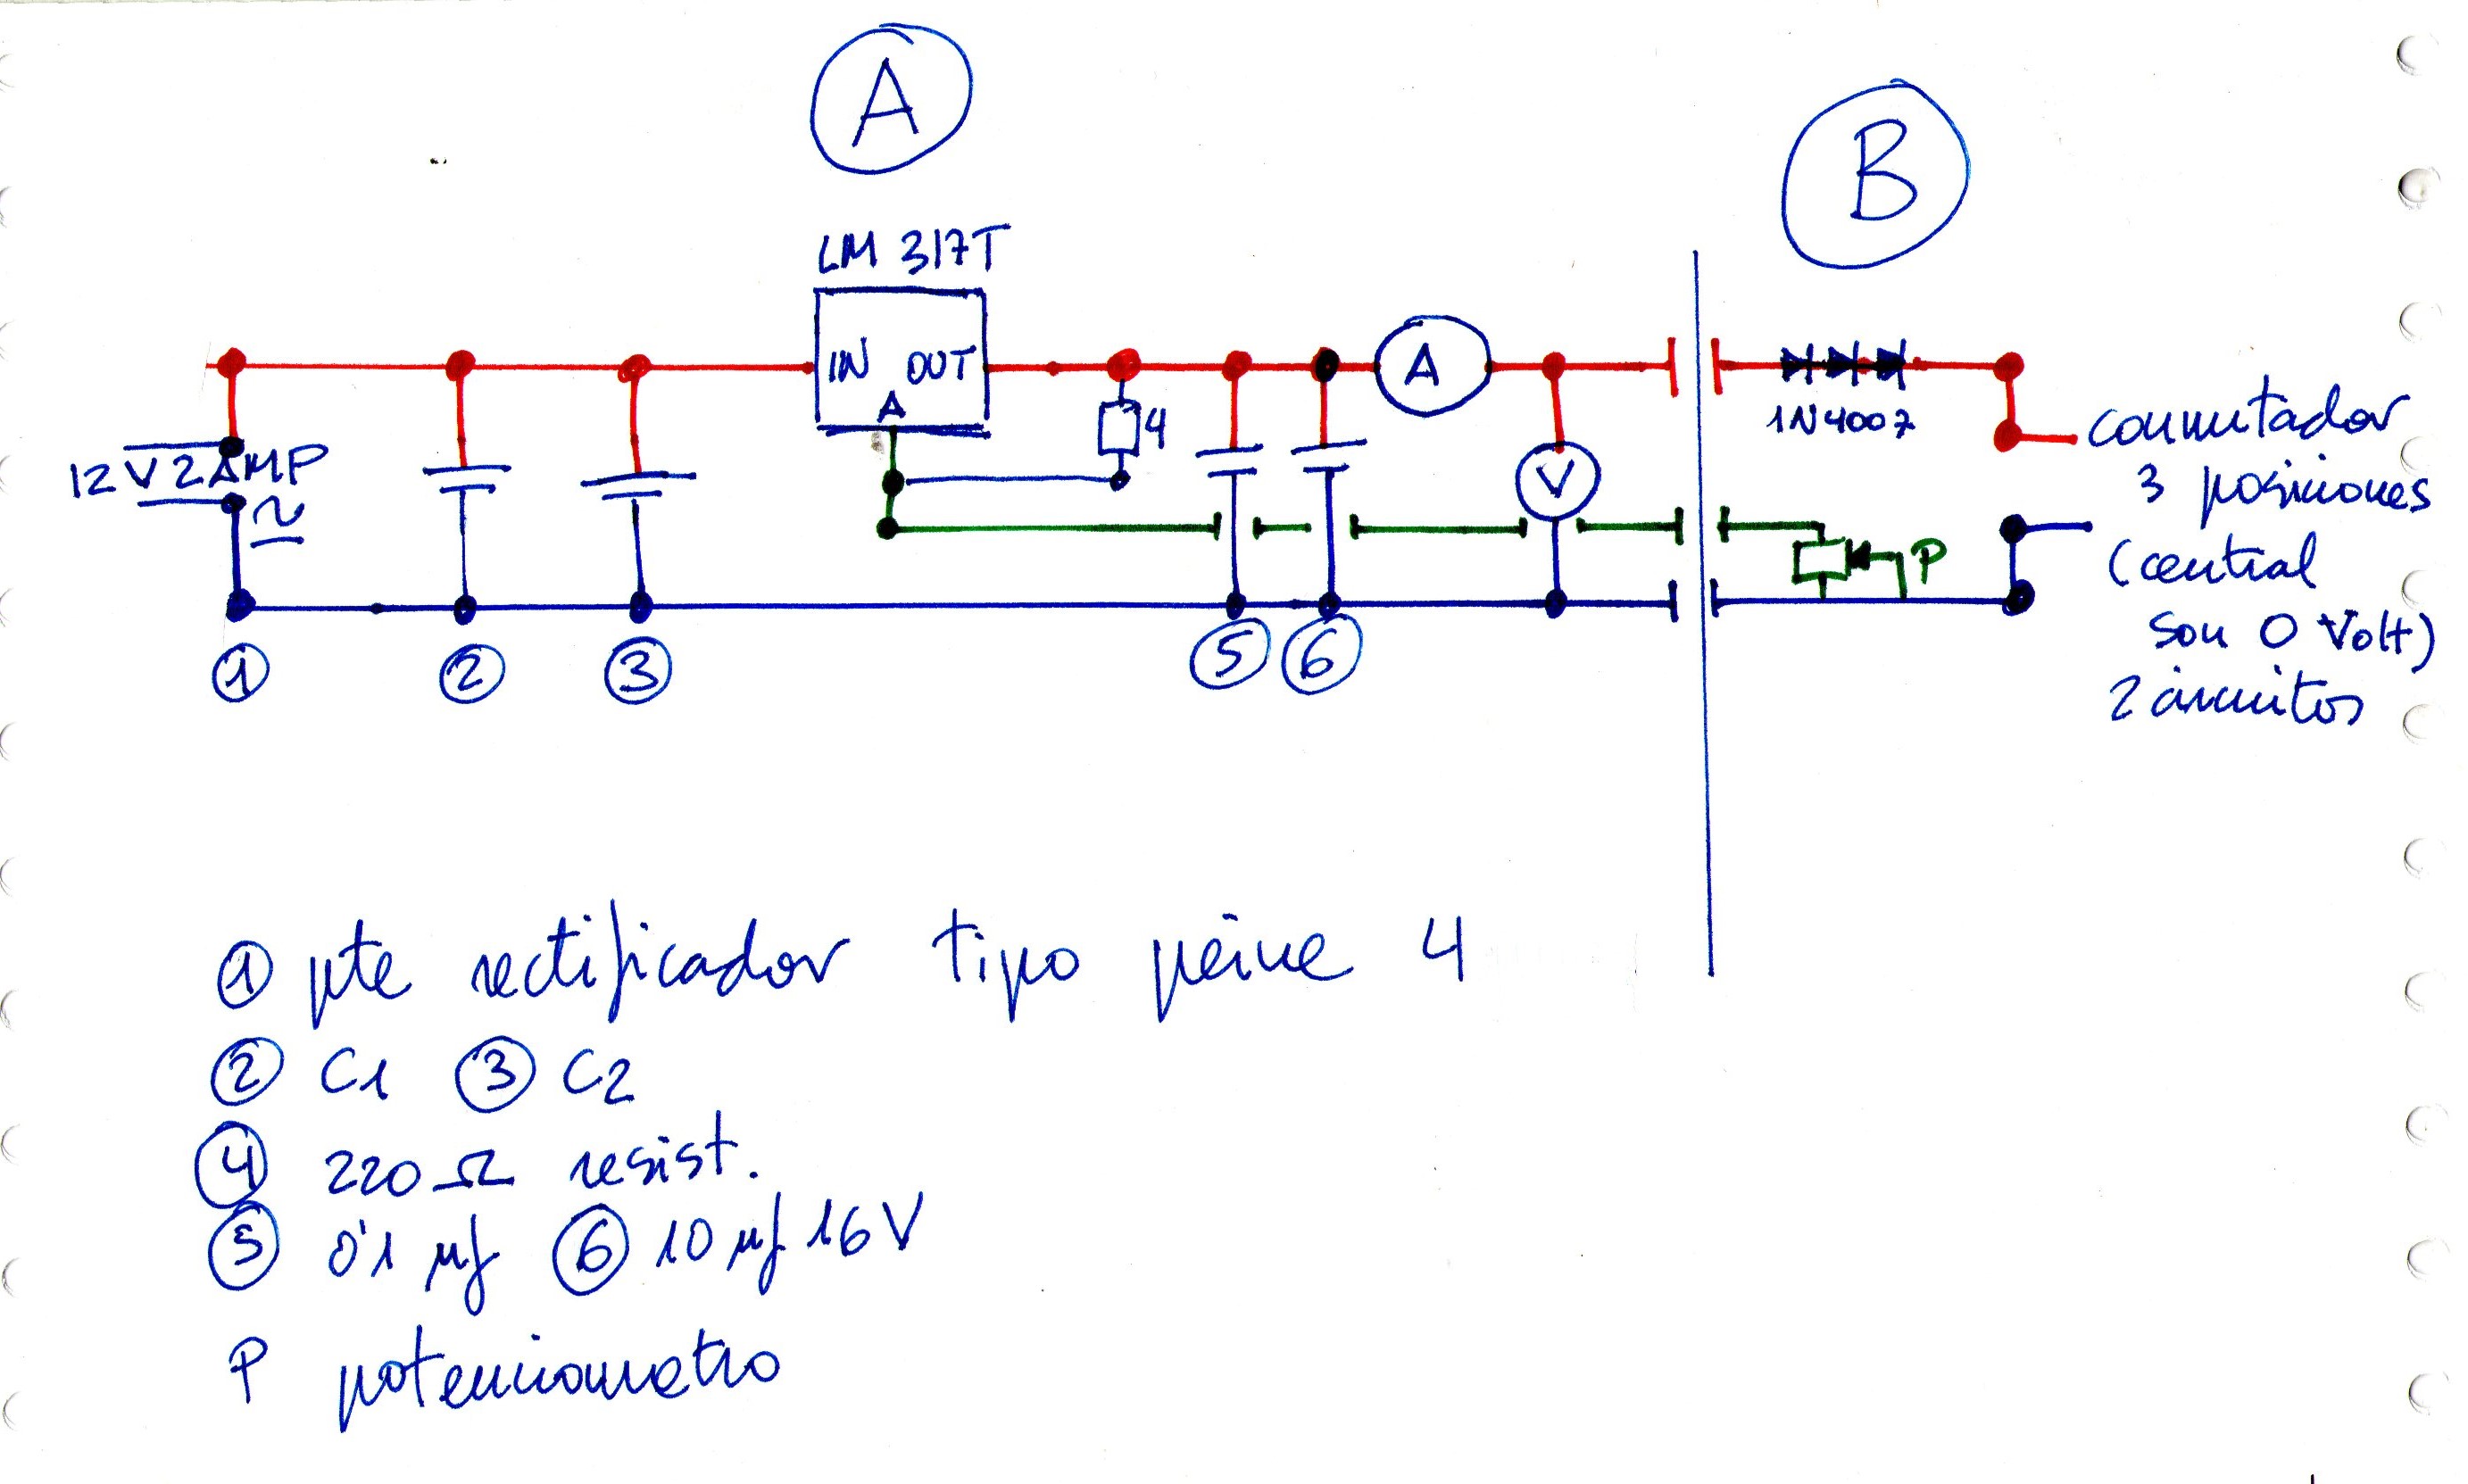 A
B
LM 317T
IN OUT
A
A
4
V
12 V 2 AMP
~
1N4007
P
conmutador
3 posiciones
(central
son 0 Volt)
2 circuitos
1 2 3 5 6
1 pte rectificador tipo peine 4
2 C1 3 C2
4 220 Ω resist.
5 0'1 µf 6 10 µf 16V
P potenciometro